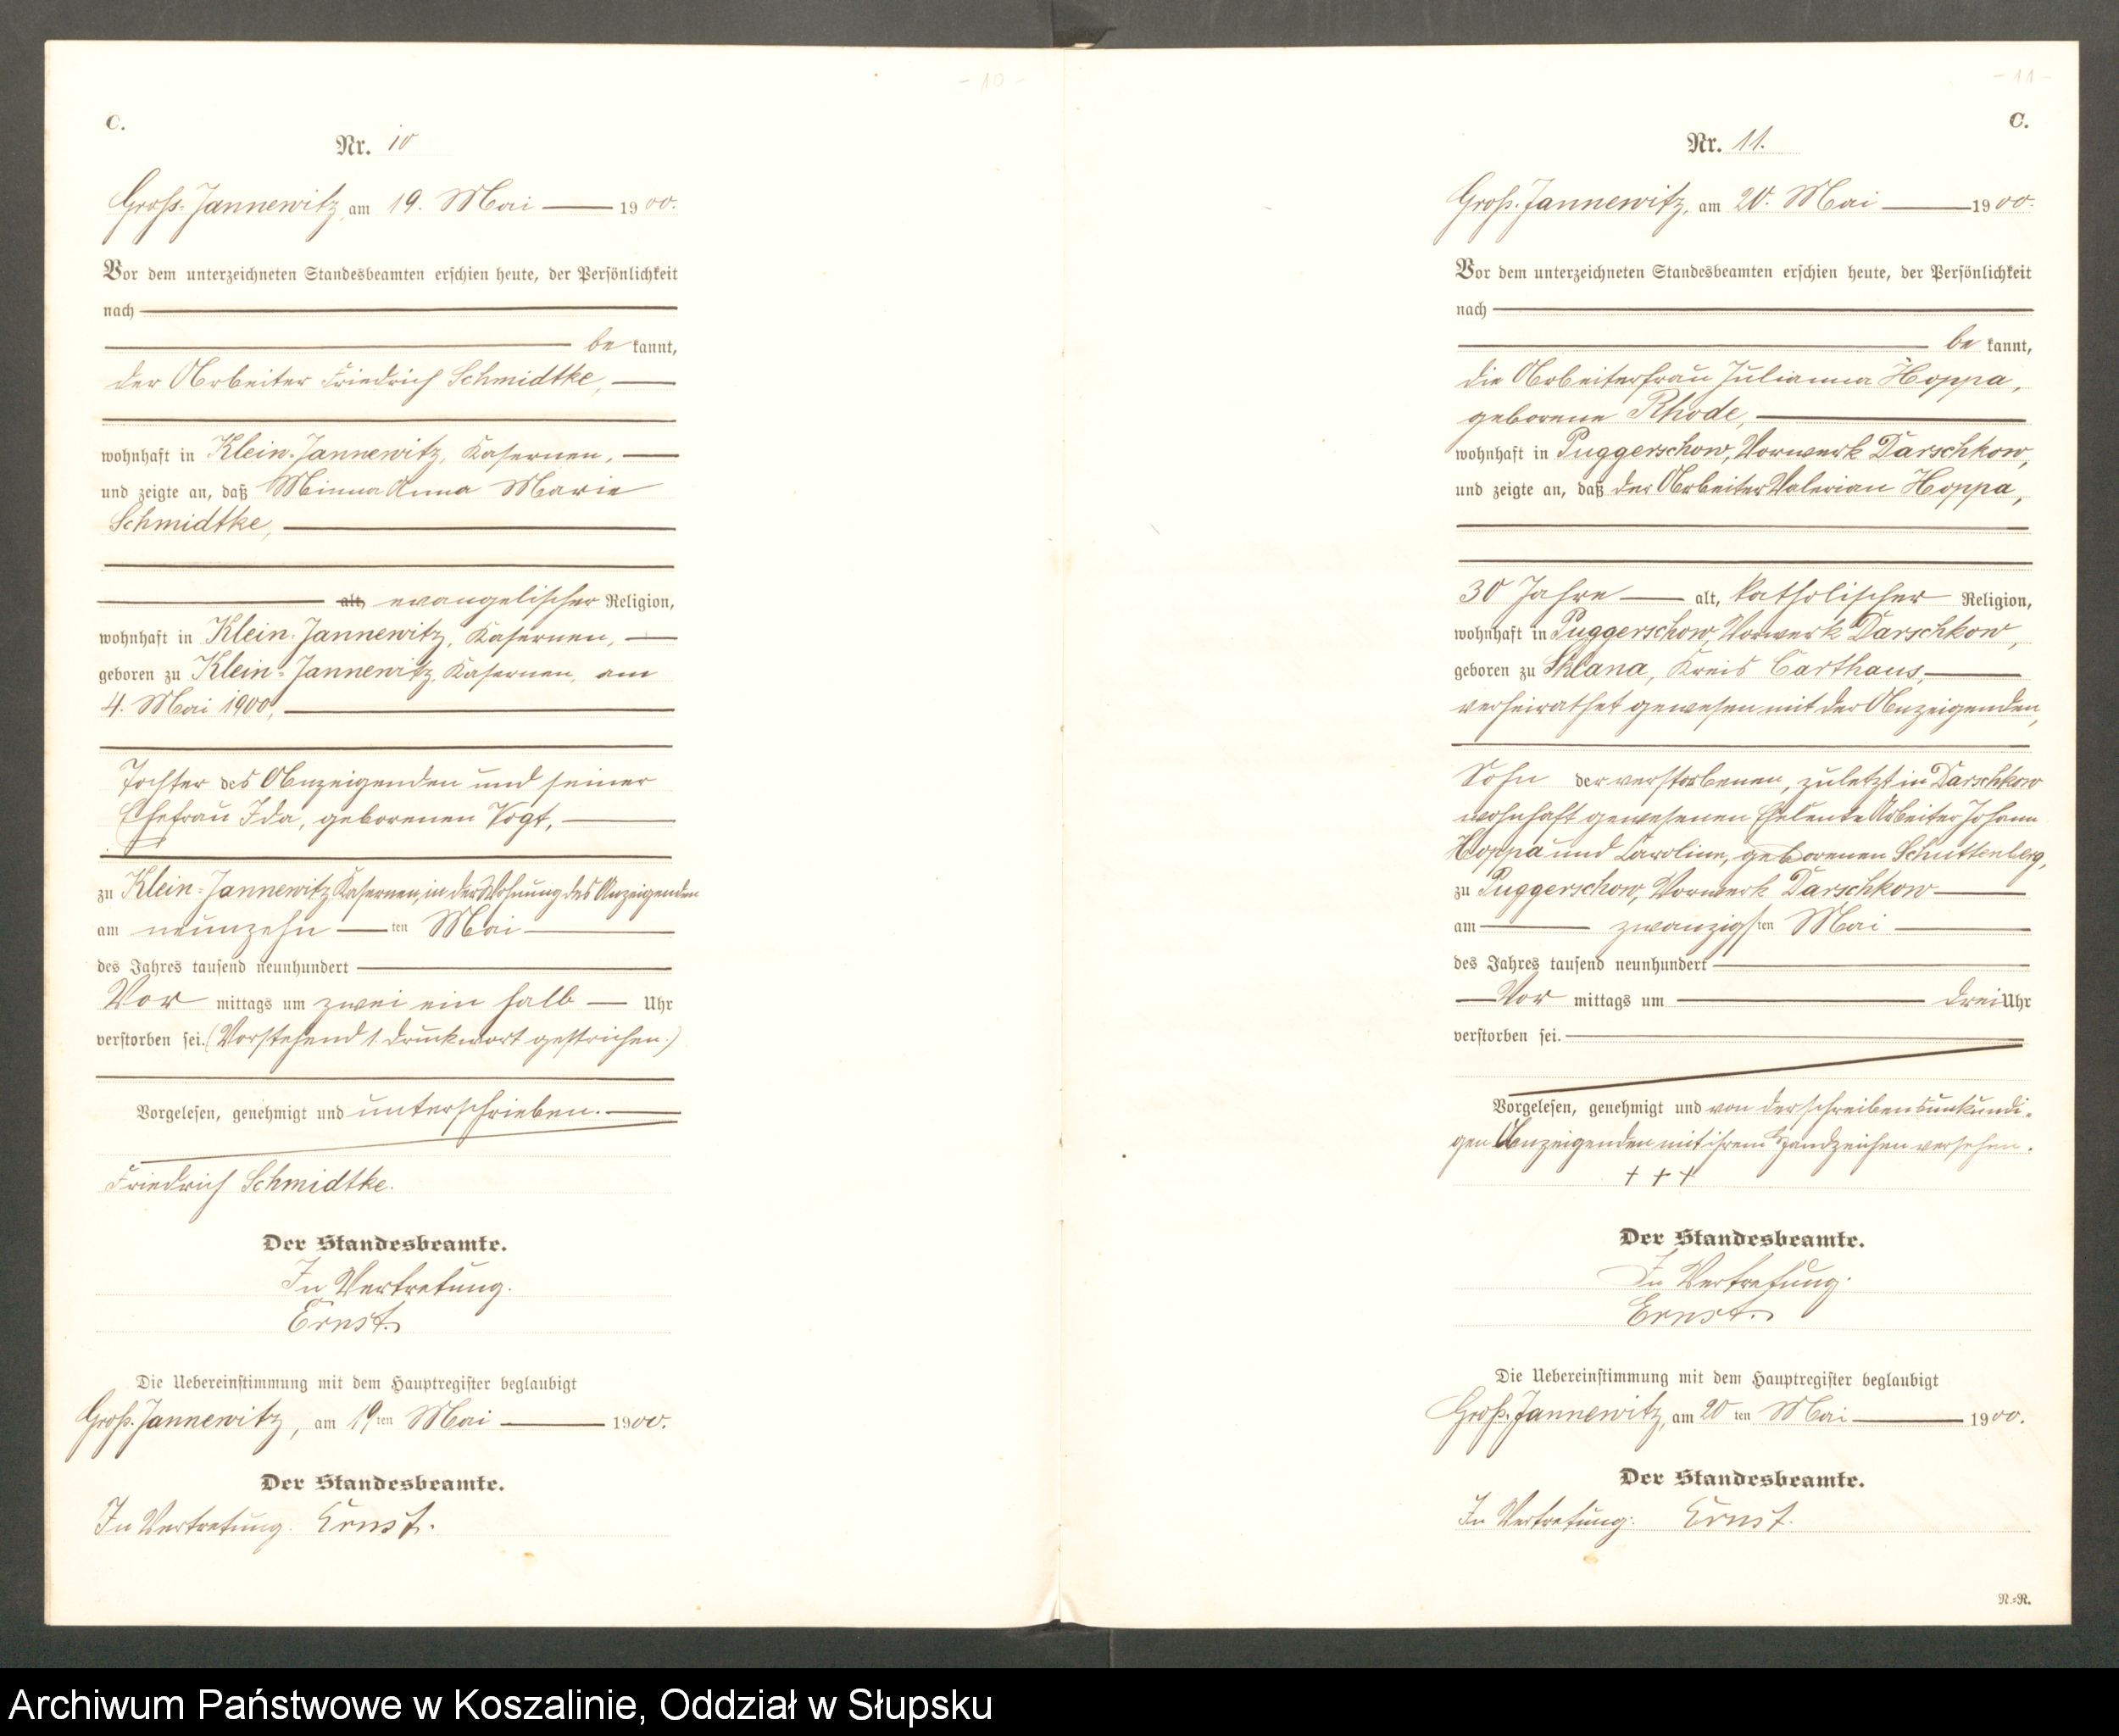 - 10 -
C.
Nr. 10
Groß-Jannewitz, am 19. Mai 1900.
Vor dem unterzeichneten Standesbeamten erschien heute, der Persönlichkeit
nach
be kannt,
der Arbeiter Friedrich Schmidtke,
wohnhaft in Klein-Jannewitz, Kasernen,
und zeigte an, daß Minna Anna Marie
Schmidtke,
alt, evangelischer Religion,
wohnhaft in Klein-Jannewitz, Kasernen,
geboren zu Klein-Jannewitz, Kasernen, am
4. Mai 1900,
Tochter des Anzeigenden und seiner
Ehefrau Ida, geborenen Vogt,
zu Klein-Jannewitz Kasernen, in der Wohnung des Anzeigenden
am neunzehn ten Mai
des Jahres tausend neunhundert
Vor mittags um zwei ein halb Uhr
verstorben sei. (Vorstehend 1 Druckwort gestrichen.)
Vorgelesen, genehmigt und unterschrieben.
Friedrich Schmidtke.
Der Standesbeamte.
In Vertretung.
Ernst.
Die Uebereinstimmung mit dem Hauptregister beglaubigt
Groß-Jannewitz, am 19ten Mai 1900.
Der Standesbeamte.
In Vertretung. Ernst.
- 11 -
C.
Nr. 11.
Groß-Jannewitz, am 20. Mai 1900.
Vor dem unterzeichneten Standesbeamten erschien heute, der Persönlichkeit
nach
be kannt,
die Arbeiterfrau Julianna Hoppa,
geborene Rhode,
wohnhaft in Puggerschow, Vorwerk Darschkow,
und zeigte an, daß der Arbeiter Valerian Hoppa,
30 Jahre alt, katholischer Religion,
wohnhaft in Puggerschow, Vorwerk Darschkow,
geboren zu Sklana, Kreis Carthaus,
verheirathet gewesen mit der Anzeigenden,
Sohn der verstorbenen, zuletzt in Darschkow
wohnhaft gewesenen Eheleute Arbeiter Johann
Hoppa und Caroline, geborenen Schuttenberg,
zu Puggerschow, Vorwerk Darschkow
am zwanzigsten Mai
des Jahres tausend neunhundert
Vor mittags um drei Uhr
verstorben sei.
Vorgelesen, genehmigt und von der schreibensunkundi-
gen Anzeigenden mit ihrem Handzeichen versehen.
+ + +
Der Standesbeamte.
In Vertretung.
Ernst.
Die Uebereinstimmung mit dem Hauptregister beglaubigt
Groß-Jannewitz, am 20 ten Mai 1900.
Der Standesbeamte.
In Vertretung. Ernst.
N.=R.
Archiwum Państwowe w Koszalinie, Oddział w Słupsku